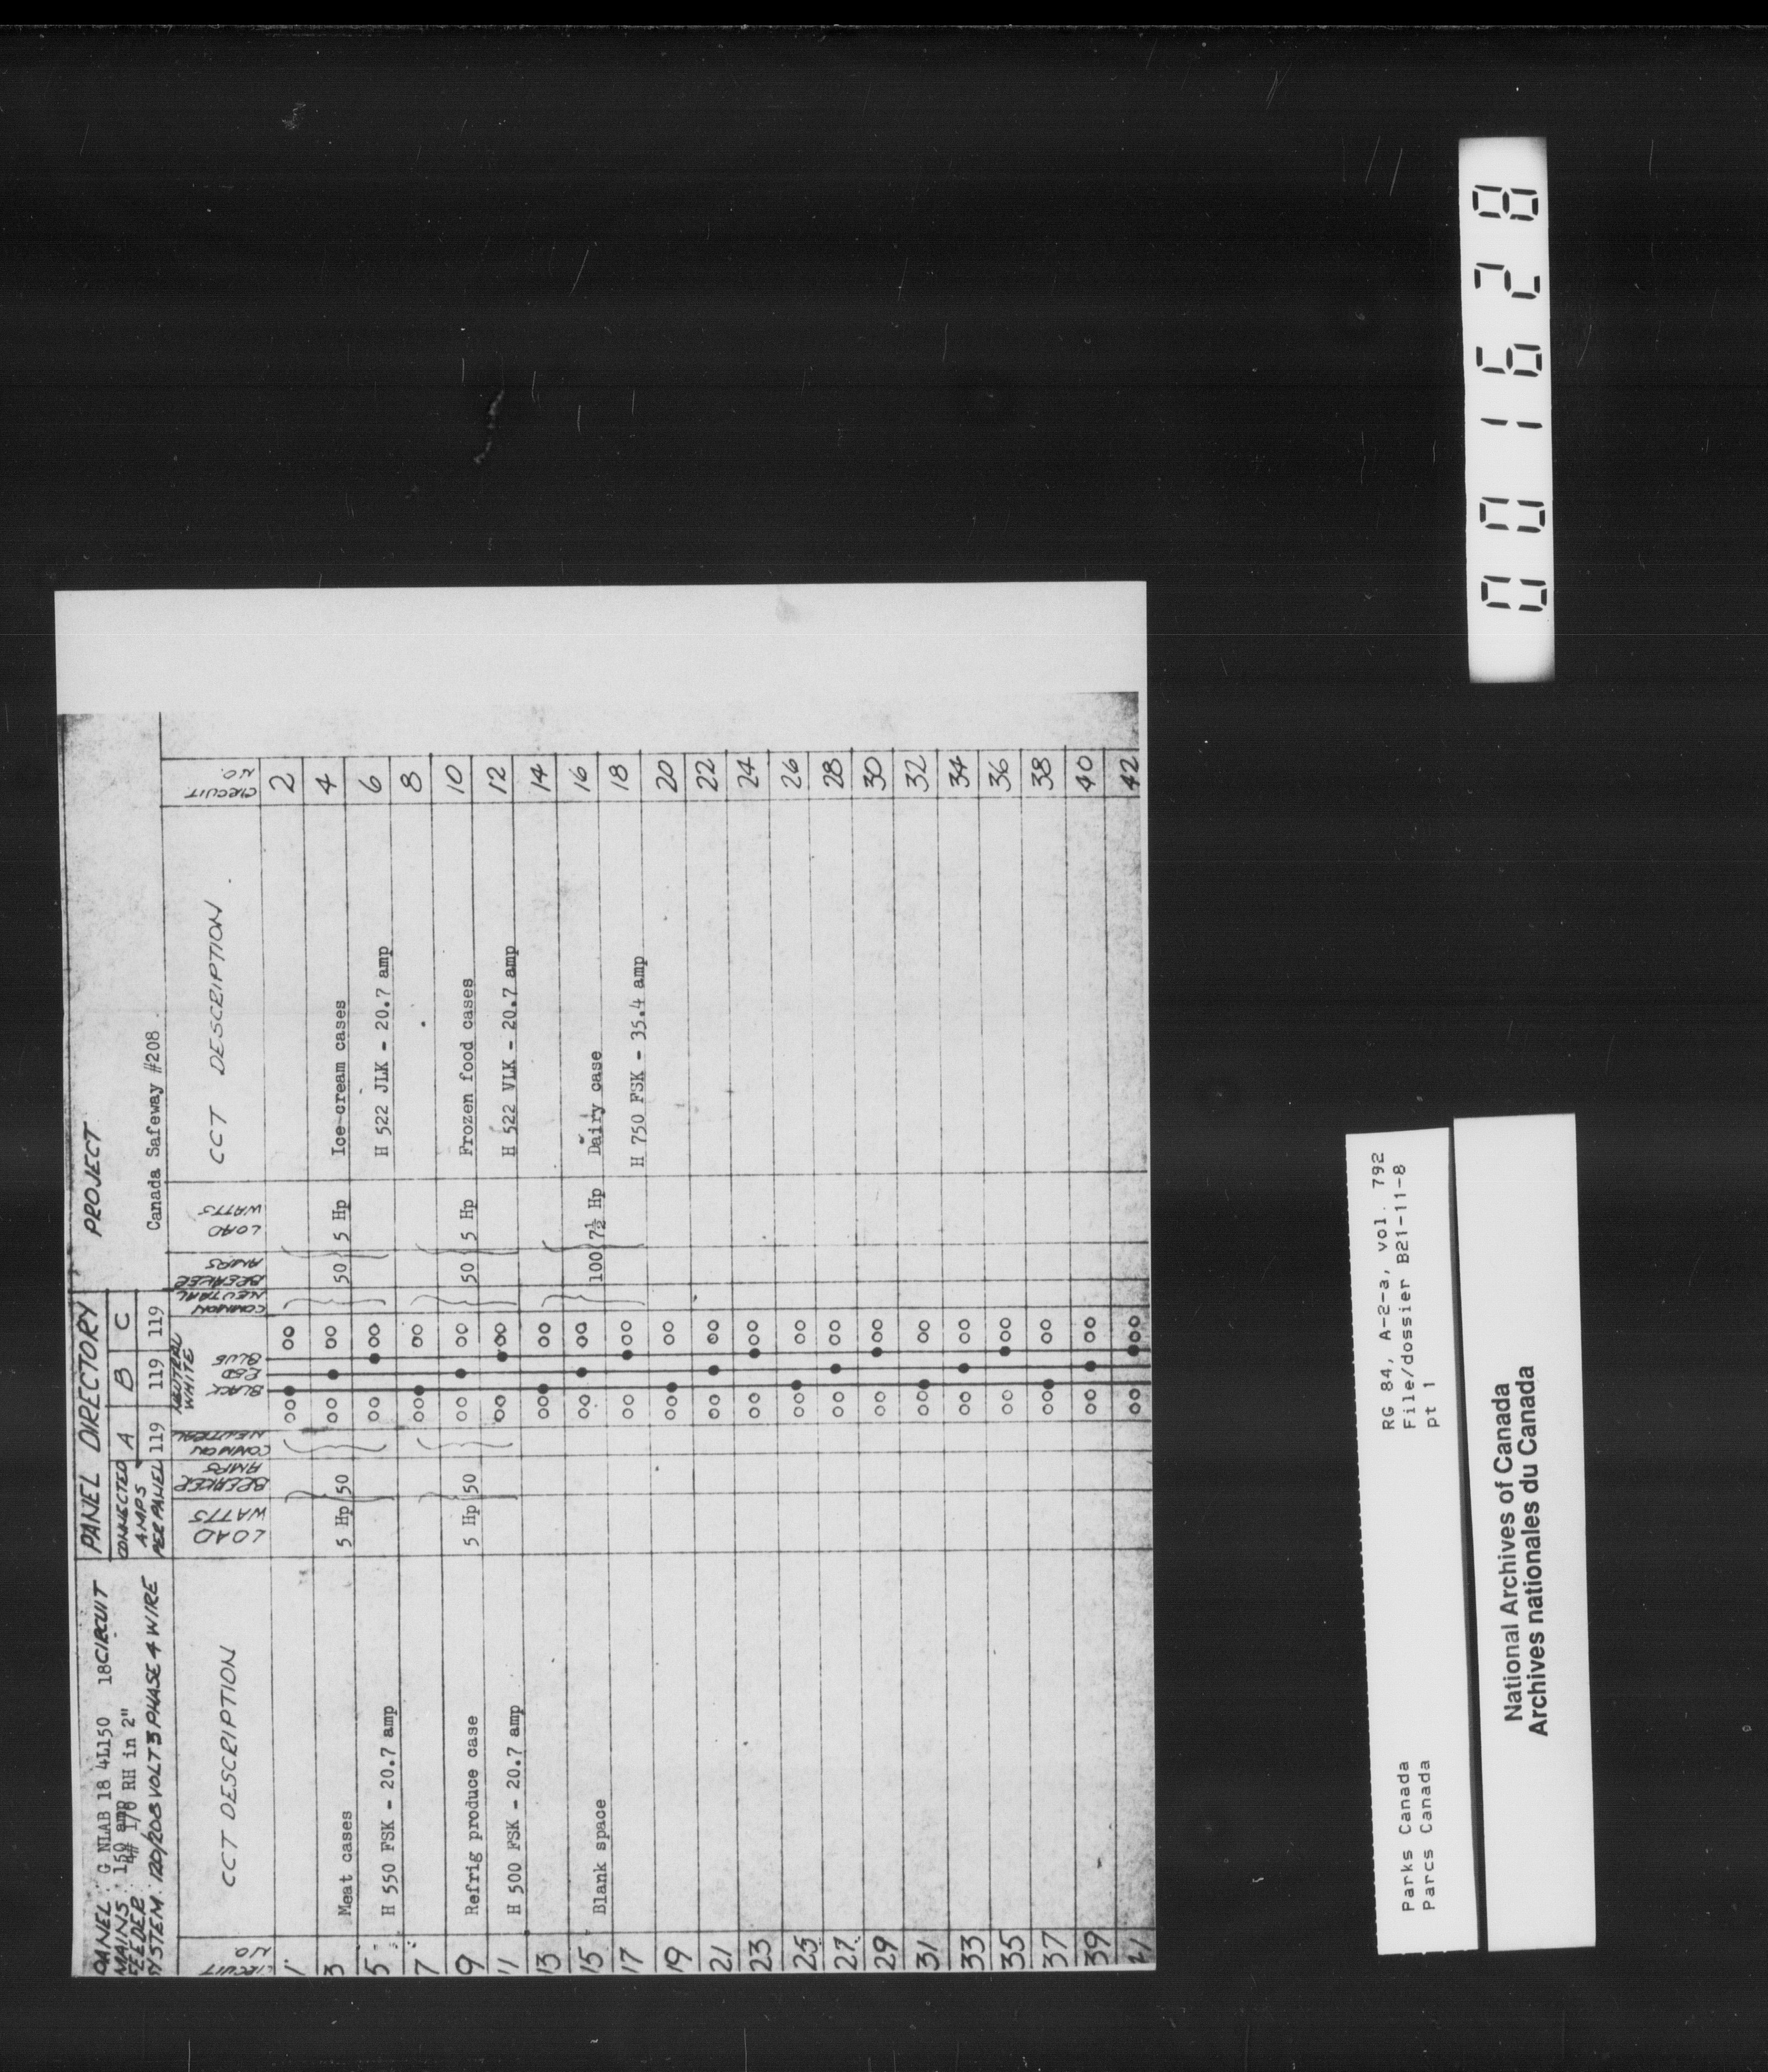 PANEL : G NLAB 18 4L150 18 CIRCUIT
MAINS : 150 amp
FEEDER : 4# 1/0 RH in 2"
SYSTEM : 120/208 VOLT 3 PHASE 4 WIRE
PANEL DIRECTORY
CONNECTED AMPS PER PANEL
A B C
119 119 119
PROJECT
Canada Safeway #208
CIRCUIT NO.
CCT DESCRIPTION
LOAD WATTS
BREAKER AMPS
COMMON NEUTRAL
NEUTRAL WHITE
BLACK
RED
BLUE
COMMON NEUTRAL
BREAKER AMPS
LOAD WATTS
CCT DESCRIPTION
CIRCUIT NO.
1 2
3 Meat cases 5 Hp 50 50 5 Hp Ice-cream cases 4
5 H 550 FSK - 20.7 amp H 522 JLK - 20.7 amp 6
7 8
9 Refrig produce case 5 Hp 50 50 5 Hp Frozen food cases 10
11 H 500 FSK - 20.7 amp H 522 VLK - 20.7 amp 12
13 14
15 Blank space 100 7½ Hp Dairy case 16
17 H 750 FSK - 35.4 amp 18
19 20
21 22
23 24
25 26
27 28
29 30
31 32
33 34
35 36
37 38
39 40
41 42
Parks Canada RG 84, A-2-a, vol. 792
Parcs Canada File/dossier B21-11-8
pt 1
National Archives of Canada
Archives nationales du Canada
001628